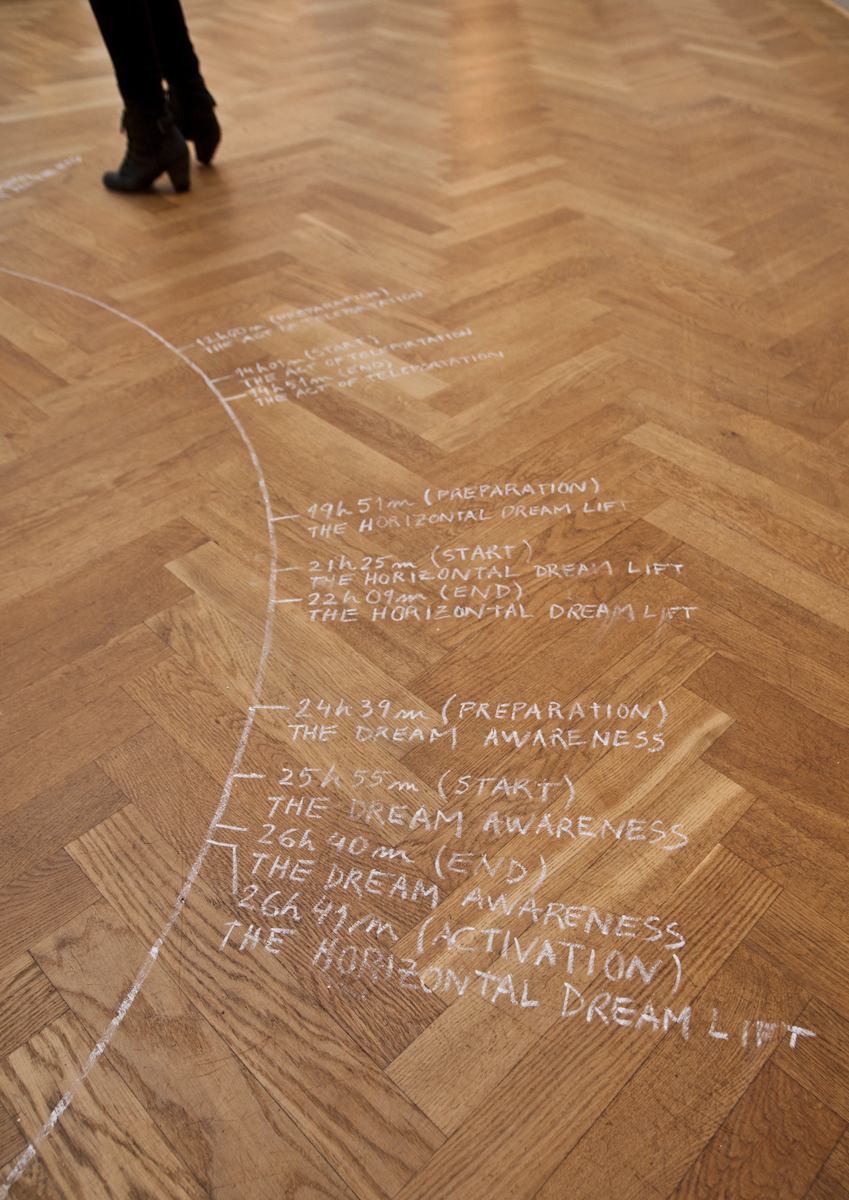 12h00m (PREPARATION)
THE ACT OF TELEPORTATION
14h01m (START)
THE ACT OF TELEPORTATION
14h51m (END)
THE ACT OF TELEPORTATION
19h51m (PREPARATION)
THE HORIZONTAL DREAM LIFT
21h25m (START)
THE HORIZONTAL DREAM LIFT
22h09m (END)
THE HORIZONTAL DREAM LIFT
24h39m (PREPARATION)
THE DREAM AWARENESS
25h55m (START)
THE DREAM AWARENESS
26h40m (END)
THE DREAM AWARENESS
26h41m (ACTIVATION)
THE HORIZONTAL DREAM LIFT